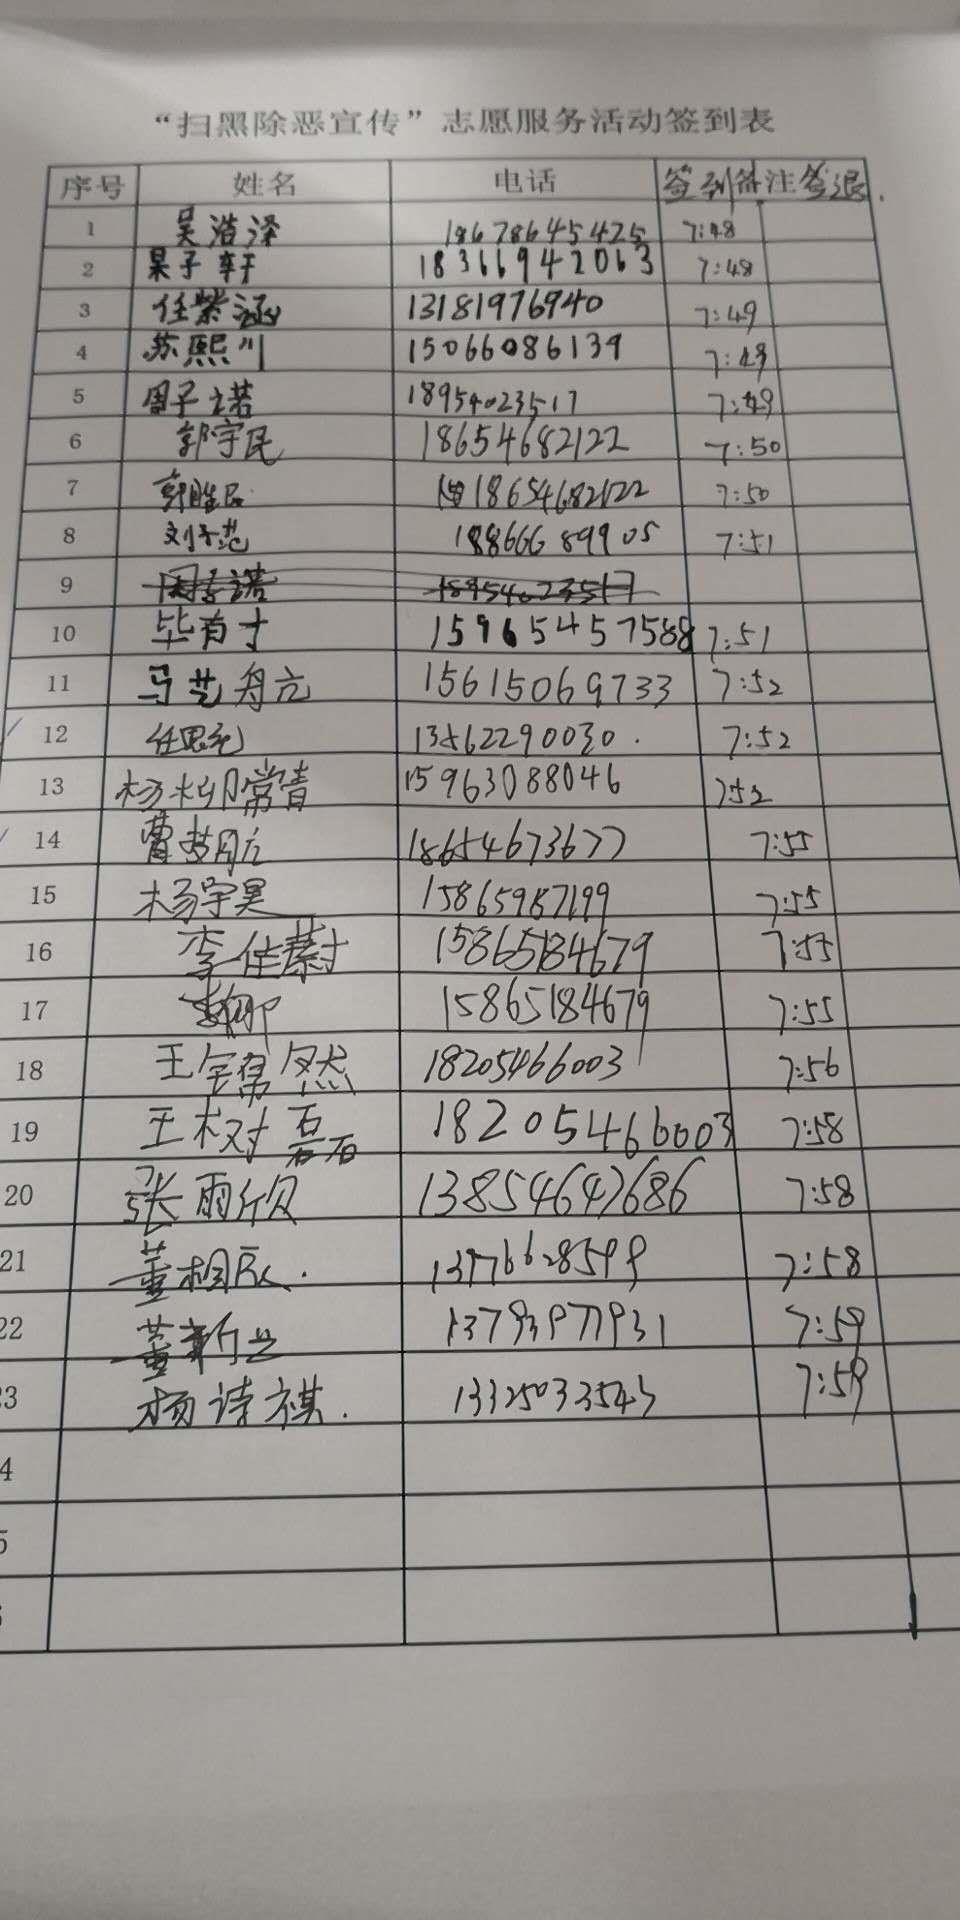 “扫黑除恶宣传”志愿服务活动签到表
序号 姓名 电话 签到 备注 签退
1 吴浩泽 18678645425 7:48
2 杲子轩 18366942063 7:48
3 任紫涵 13181976940 7:49
4 苏熙川 15066086139 7:49
5 周子诺 18954023517 7:49
6 郭宇民 18654682122 7:50
7 郭胜民 18654682122 7:50
8 刘子范 18866689905 7:51
9
10 毕育才 15965457588 7:51
11 马艺舟亢 15615069733 7:52
12 任思 13562290030 7:52
13 杨柳常青 15963088046 7:52
14 曹梦 18654673677 7:55
15 杨宇昊 15865987199 7:55
16 李佳蔚 15865184679 7:55
17 李娜 15865184679 7:55
18 王 然 18205466003 7:56
19 王树磊 18205466003 7:58
20 张雨欣 13854647686 7:58
21 董相辰 13776628599 7:58
22 董新 13793977931 7:59
23 杨诗祺 13325033543 7:59
4
5